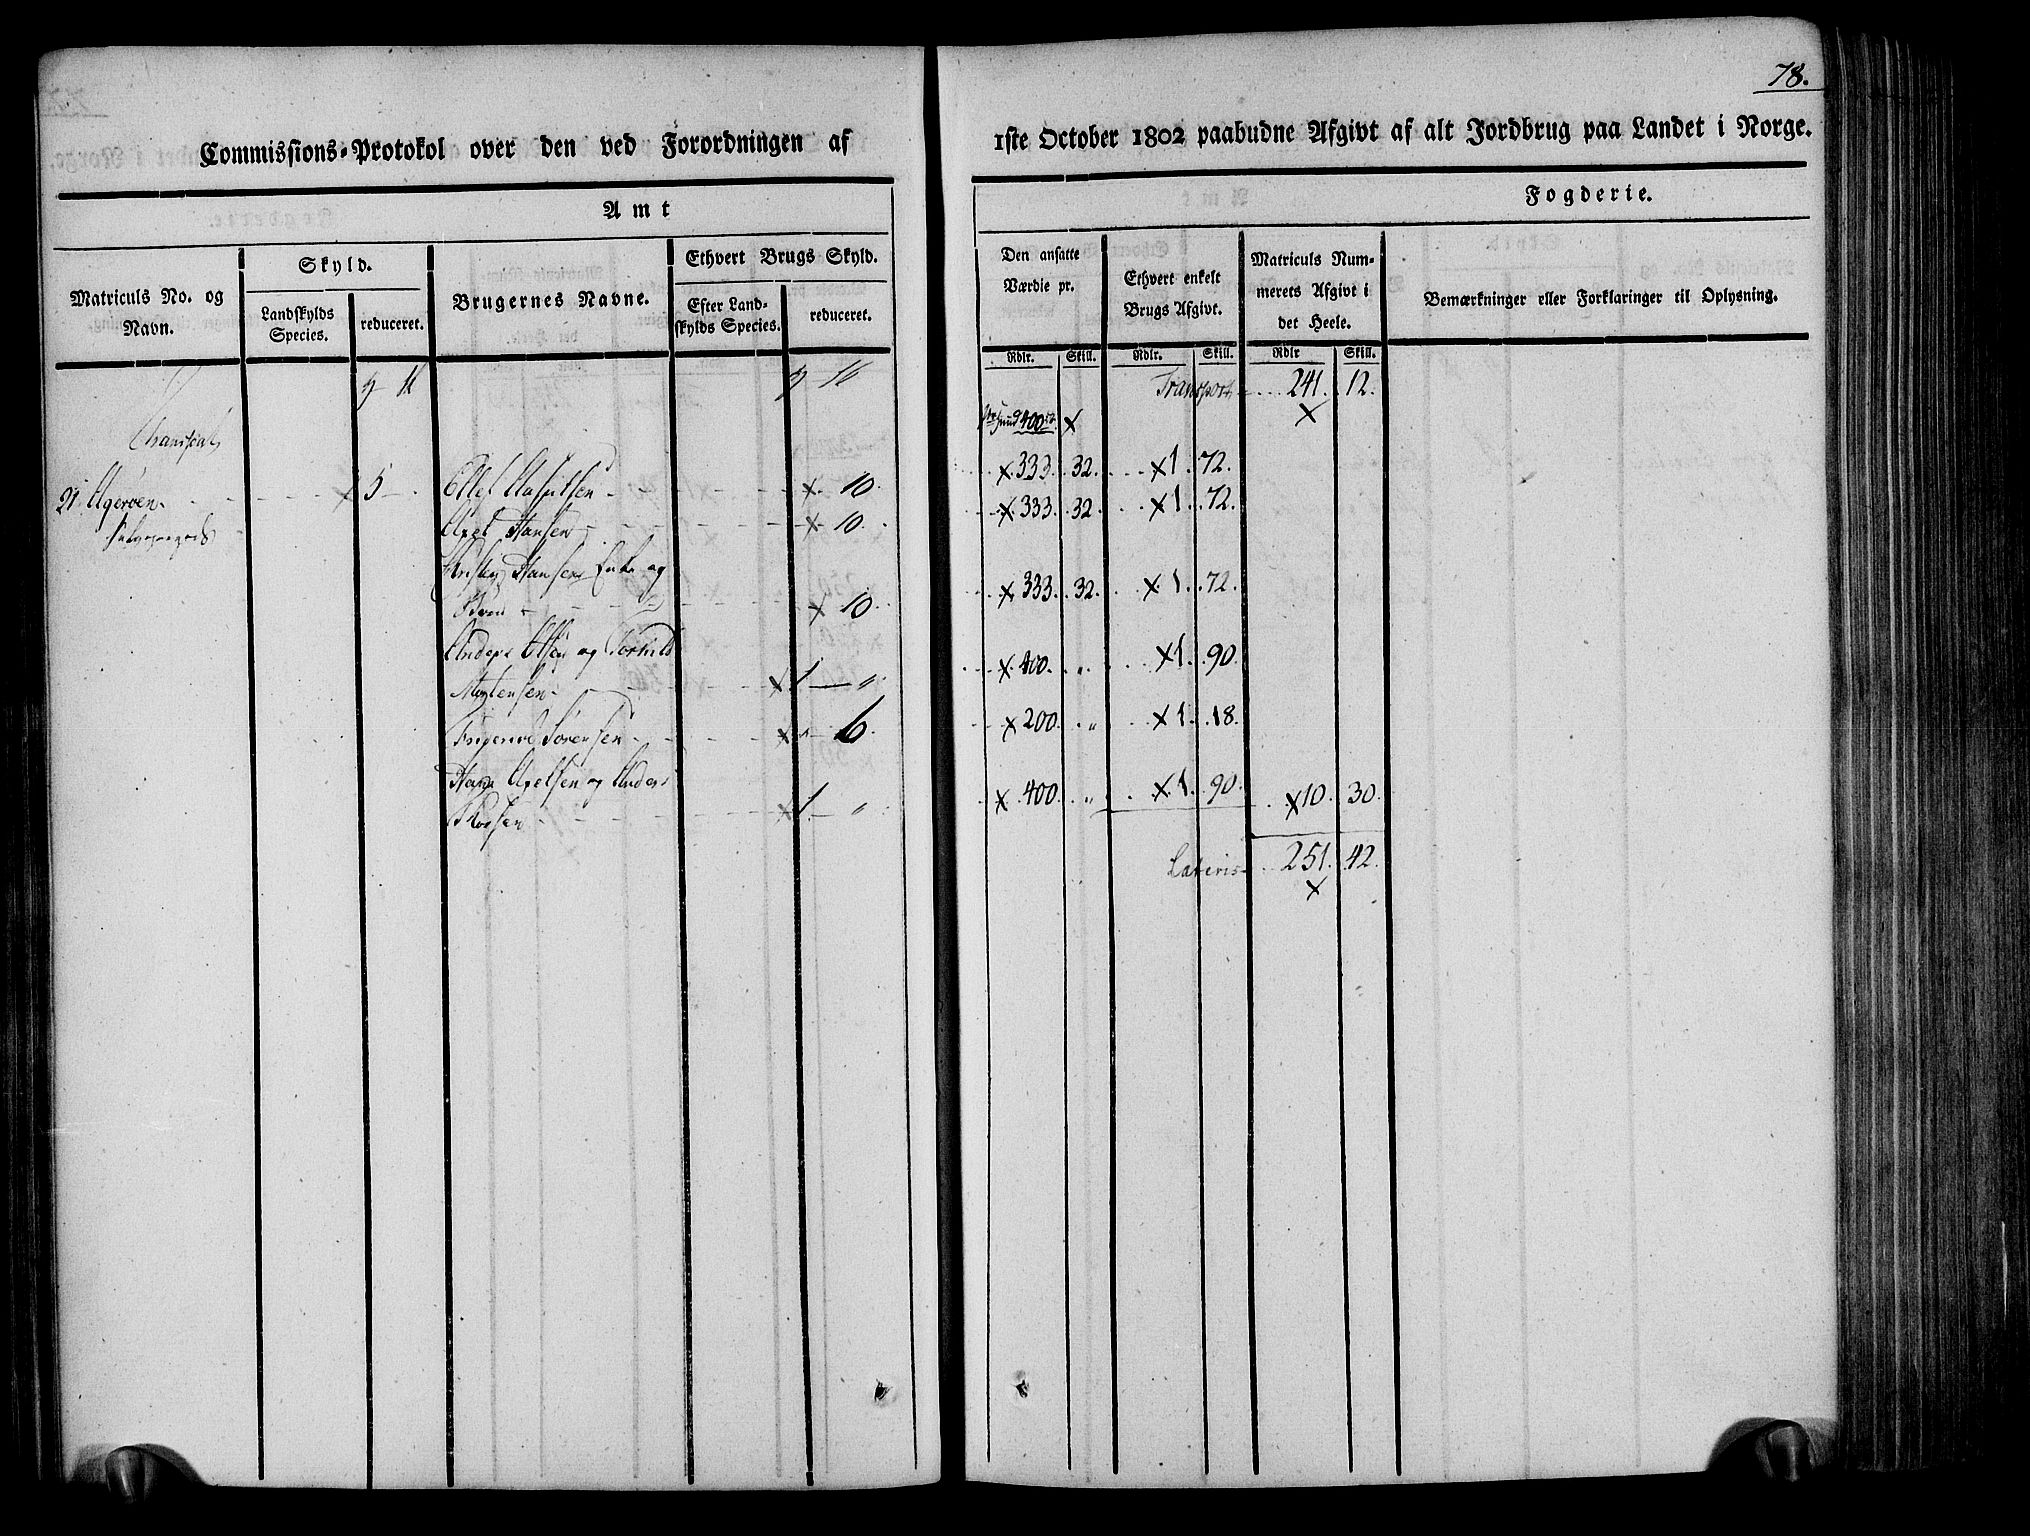 78.
Commissions-Protokol over den ved Forordningen af
1ste October 1802 paabudne Afgivt af alt Jordbrug paa Landet i Norge.
Amt
Fogderie.
Matriculs No. og Navn.
Skyld.
Landskylds Species.
reduceret.
Brugernes Navne.
Ethvert Brugs Skyld.
Efter Landskylds Species.
reduceret.
Den ansatte Værdie pr.
Ethvert enkelt Brugs Afgivt.
Matriculs Nummerets Afgivt i det Heele.
Bemærkninger eller Forklaringer til Oplysning.
Rdlr. Skill. Rdlr. Skill. Rdlr Skill.
Transport 241. 12.
400
21 Ageröen 5 Ellef 10. 333. 32. 1. 72.
Axel Hansen 10. 333. 32. 1. 72.
Hansens Enke og
10. 333. 32. 1. 72.
Anders Olsen og
Mortensen 1 " 400. " 1. 90.
Sörensen 6. 200. " 1. 18.
Hans Axelsen og Anders
1 " 400. " 1. 90. 10. 30.
Lateris 251. 42.